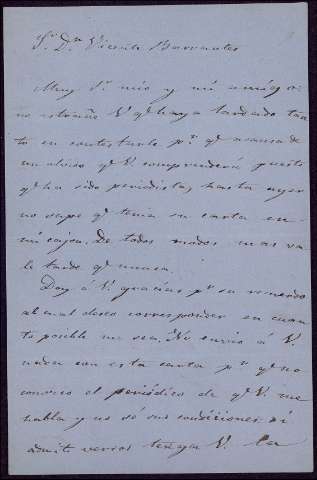 Sr. Dn. Vicente Barrantes
Muy Sr. mio y mi amigo:
no estrañe V. qe haya tardado tan
to en contestarle pr. qe a causa de
un olvido qe V. comprenderá puesto
qe ha sido periodista, hasta ayer
no supe qe tenia su carta en
mi cajon. De todos modos mas va
le tarde qe nunca.
Doy á V. gracias pr su recuerdo
al cual deseo corresponder en cuan
to posible me sea. No envio á V.
nada con esta carta pr. qe no
conozco el periódico de qe V. me
habla y no sé sus condiciones. Si
admite versos tenga V. la